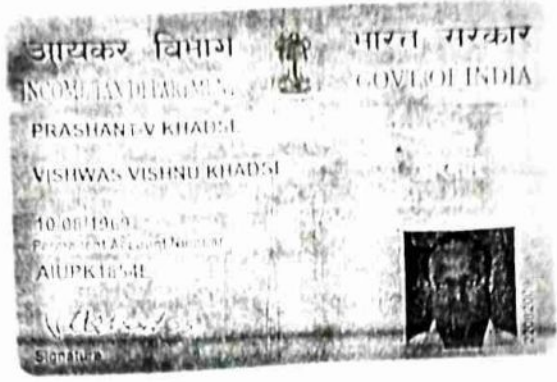 आयकर विभाग भारत सरकार
INCOME TAX DEPARTMENT GOVT. OF INDIA
PRASHANT V KHADSE
VISHWAS VISHNU KHADSE
Permanent Account Number
Signature